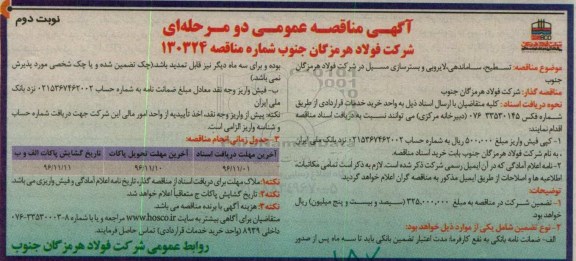 نوبت دوم
آگهی مناقصه عمومی دو مرحله‌ای
شرکت فولاد هرمزگان جنوب شماره مناقصه ۱۳۰۳۲۴
موضوع مناقصه: تسطیح، ساماندهی، لایروبی و بسترسازی مسیل در شرکت فولاد هرمزگان
جنوب
مناقصه گذار: شرکت فولاد هرمزگان جنوب
نحوه دریافت اسناد: کلیه متقاضیان با ارسال اسناد ذیل به واحد خرید خدمات قراردادی از طریق
شماره فکس ۳۳۵۳۰۱۴۵ ۰۷۶ (دبیرخانه مرکزی) می توانند نسبت به دریافت اسناد مناقصه
اقدام نمایند:
۱- کپی فیش واریز مبلغ ۵۰۰,۰۰۰ ریال به شماره حساب ۰۲۱۵۳۶۷۴۶۲۰۰۲ نزد بانک ملی ایران
به نام شرکت فولاد هرمزگان جنوب بابت خرید اسناد مناقصه.
۲- نامه اعلام آمادگی که در آن ایمیل رسمی شرکت ذکر شده است. لازم به ذکر است تمامی مکاتبات،
اطلاعیه ها و اصلاحات از طریق ایمیل مذکور به مناقصه گران اعلام خواهد گردید.
توضیحات:
۱- تضمین شرکت در مناقصه به مبلغ ۳۲۵,۰۰۰,۰۰۰ (سیصد و بیست و پنج میلیون) ریال
خواهد بود
۲- نوع تضمین شامل یکی از موارد ذیل خواهد بود:
الف- ضمانت نامه بانکی به نفع کارفرما: مدت اعتبار تضمین بانکی باید تا سه ماه پس از صدور
بوده و برای سه ماه دیگر نیز قابل تمدید باشد (چک تضمین شده و یا چک شخصی مورد پذیرش
نمی باشد)
ب- فیش واریز وجه نقد معادل مبلغ ضمانت نامه به شماره حساب ۰۲۱۵۳۶۷۴۶۲۰۰۲ نزد بانک
ملی ایران
نکته: پیش از واریز وجه نقد، اخذ تأییدیه از واحد امور مالی این شرکت جهت دریافت شماره حساب
و شناسه واریز الزامی است.
۳- جدول زمانی انجام مناقصه:
آخرین مهلت دریافت اسناد آخرین مهلت تحویل پاکات تاریخ گشایش پاکات الف و ب
۹۶/۱۱/۰۱ ۹۶/۱۱/۱۰ ۹۶/۱۱/۱۱
نکته۱: ملاک مهلت برای دریافت اسناد از مناقصه گذار، تاریخ نامه اعلام آمادگی و فیش واریزی می باشد
نکته۲: تاریخ گشایش پاکات ج متعاقباً اعلام خواهد شد.
نکته۳: هزینه آگهی با برنده مناقصه می باشد.
متقاضیان برای آگاهی بیشتر به سایت www.hosco.ir مراجعه و یا با شماره ۸-۳۳۵۳۰۰۰۳-۰۷۶
داخلی ۸۹۳۹ (واحد خرید خدمات قراردادی) تماس حاصل فرمایند.
روابط عمومی شرکت فولاد هرمزگان جنوب